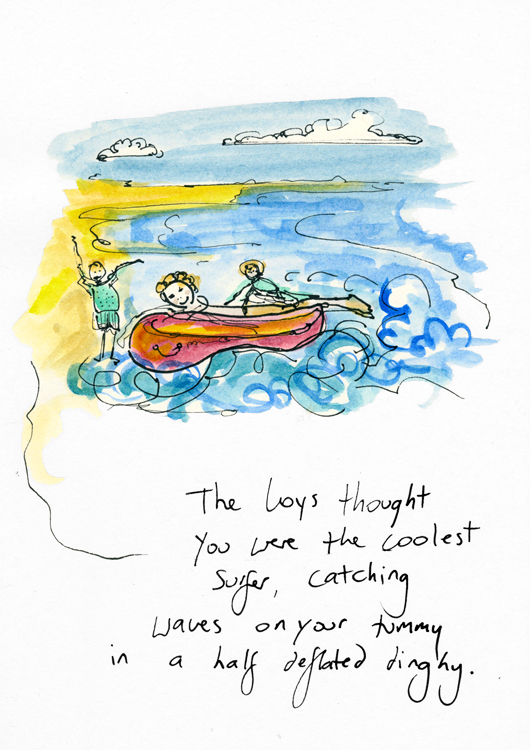 The boys thought
you were the coolest
surfer, catching
waves on your tummy
in a half deflated dinghy.